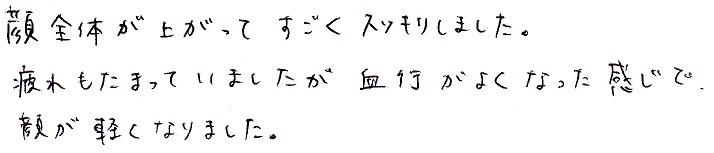 顔全体が上がってすごくスッキリしました。
疲れもたまっていましたが血行がよくなった感じで、
顔が軽くなりました。